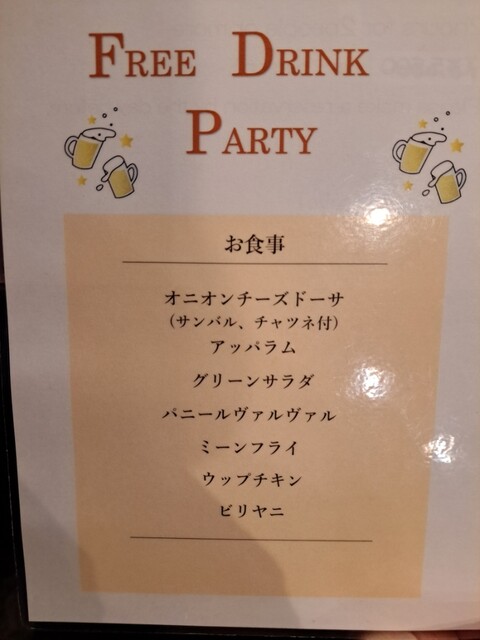 FREE DRINK
PARTY
お食事
オニオンチーズドーサ
（サンバル、チャツネ付）
アッパラム
グリーンサラダ
パニールヴァルヴァル
ミーンフライ
ウップチキン
ビリヤニ